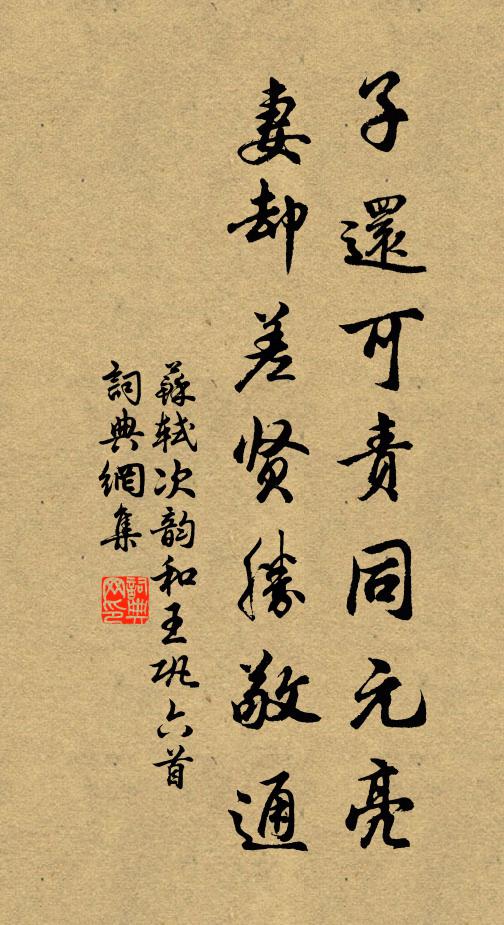 子還可責同元亮
妻却差贤勝敬通
蘇軾次韵和王巩六首
詞典網集
詞典网印